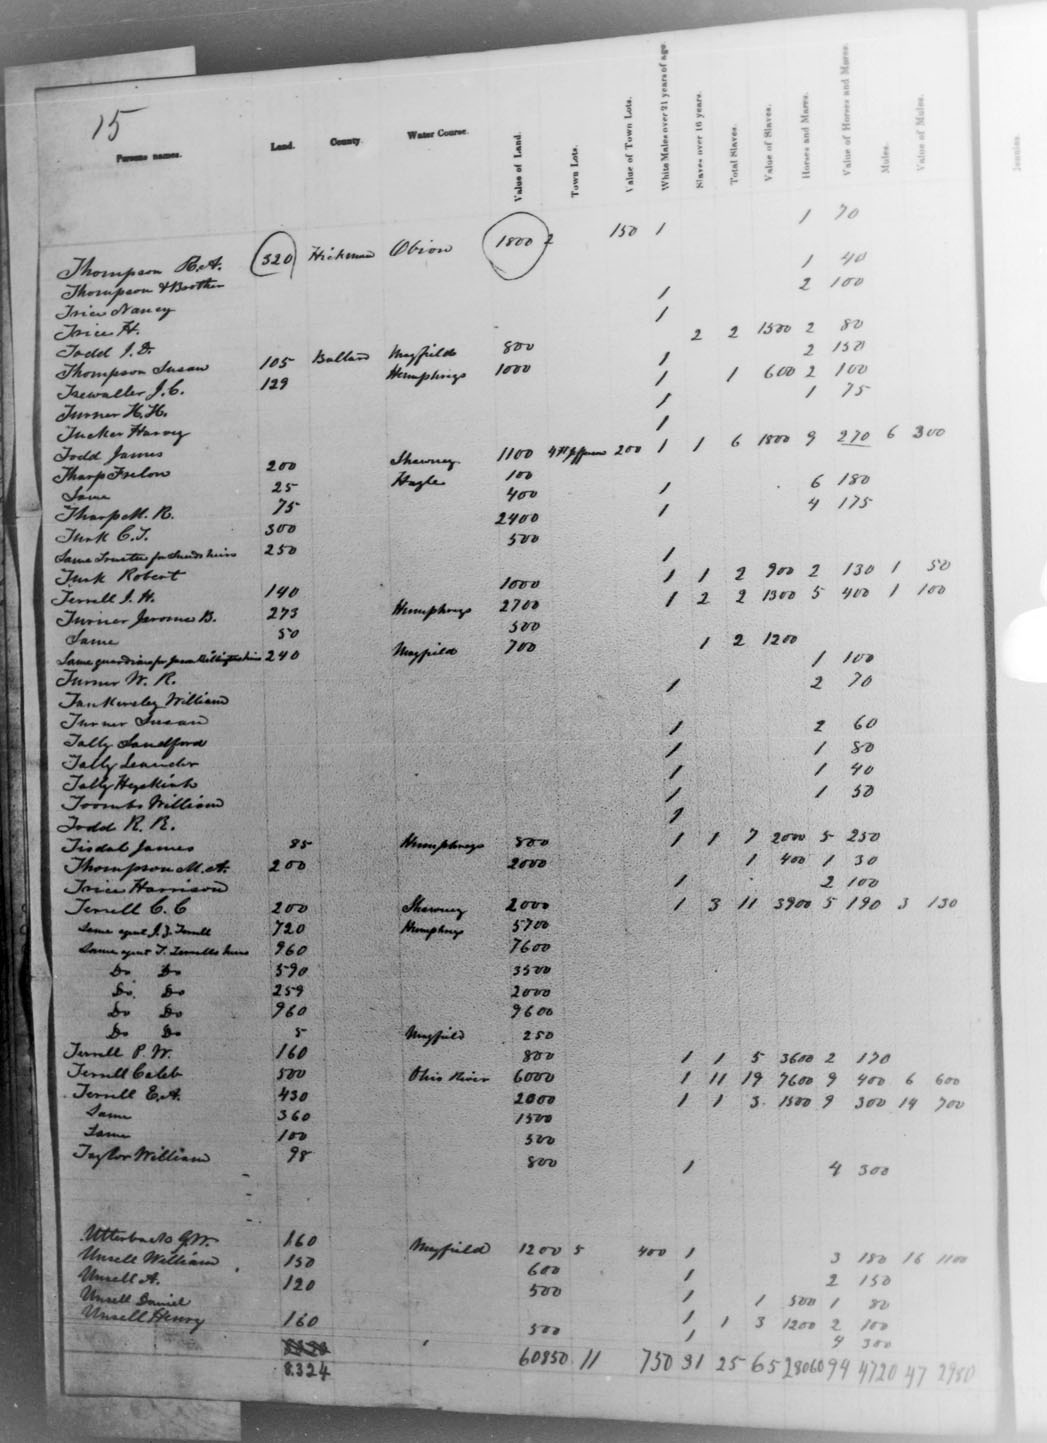 15
Persons names. Land. County Water Course. Value of Land. Town Lots. Value of Town Lots. White Males over 21 years of age. Slaves over 16 years. Total Slaves. Value of Slaves. Horses and Mares. Value of Horses and Mares. Mules. Value of Mules. Jennies.
Thompson R. A. 320 Hickman Obion 1800 2 150 1 1 70
Thompson & Brother 1 40
Trice Nancy 1 2 100
Trice H. 1
Todd J. D. 2 2 1500 2 80
Thompson Susan 105 Ballard Mayfield 800 2 150
Trewaller J. C. 129 Humphrys 1000 1 1 600 2 100
Turner H. H. 1 1 75
Tucker Harvy 1
Todd James 1
Tharp Frelon 200 Shawney 1100 4 200 1 1 6 1800 9 270 6 300
Same 25 Hagle 100
Tharp M. R. 75 400 1 6 180
Turk C. T. 300 2400 1 4 175
Same Trustee for heirs 250 500
Turk Robert 1
Terrell J. H. 140 1000 1 1 2 900 2 130 1 50
Turner Jerome B. 273 Humphrys 2700 1 2 2 1300 5 400 1 100
Same 50 500
Same guardian for heirs 240 Mayfield 700 1 2 1200
Turner W. R. 1 100
Tankersley William 1 2 70
Turner Susan
Tally Sandford 1 2 60
Tally Leander 1 1 80
Tally Hezkiah 1 1 40
Toombs William 1 1 50
Todd R. R. 1
Tisdal James 85 Humphreys 800 1 1 7 2000 5 250
Thompson M. A. 200 2000 1 400 1 30
Trice Harrison 1 2 100
Terrell C. C 200 Shawney 2000 1 3 11 3900 5 190 3 130
Same agent J. J. Terrell 720 Humphrys 5700
Same agent T. Terrells heirs 960 7600
Do Do 590 3500
Do Do 259 2000
Do Do 960 9600
Do Do 5 Mayfield 250
Terrell P. W. 160 800 1 1 5 3600 2 170
Terrell Caleb 500 Ohio River 6000 1 11 19 7600 9 400 6 600
Terrell E. A. 430 2000 1 1 3 1500 9 300 14 700
Same 360 1500
Same 100 500
Taylor William 98 800 1 4 300
Utterback G. W. 160 Mayfield 1200 5 400 1
Unsell William 150 600 1 3 180 16 1100
Unsell A. 120 500 1 2 150
Unsell Daniel 1 1 500 1 80
Unsell Henry 160 500 1 1 3 1200 2 100
4 300
8324 60850 11 750 31 25 65 28060 94 4720 47 2980